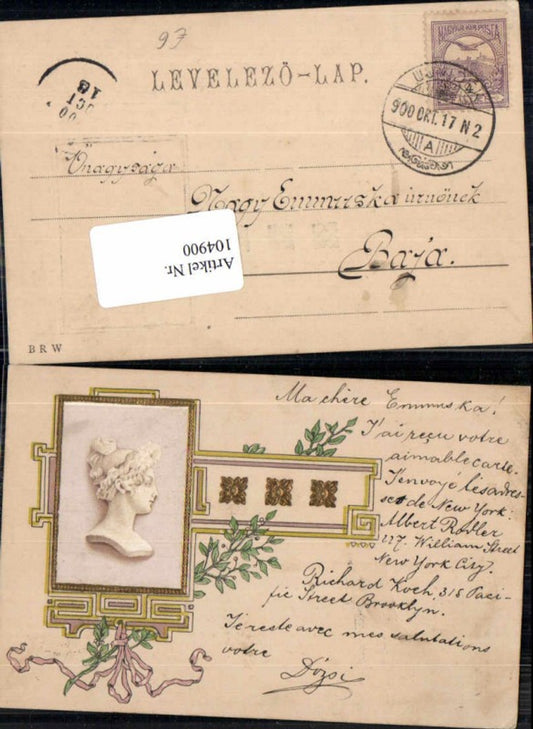 97
LEVELEZŐ-LAP.
MAGYAR KIR. POSTA
900 OKT. 17 N 2
A
OCT
18
Önagysága
Nagy Emmuska úrnőnek
Baja.
Artikel Nr.
104900
B R W
Ma chère Emmuska!
J'ai reçu votre
aimable carte.
J'envoye les adres-
ses de New York:
Albert Rotler
127. William Street
New York City.
Richard Koch, 318 Paci-
fic Street Brooklyn.
Je reste avec mes salutations
votre Dózsi